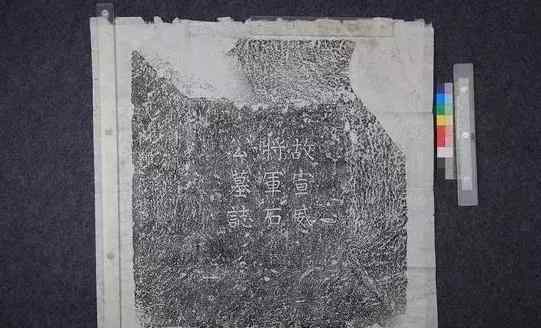 故宣威
将軍石
公墓誌